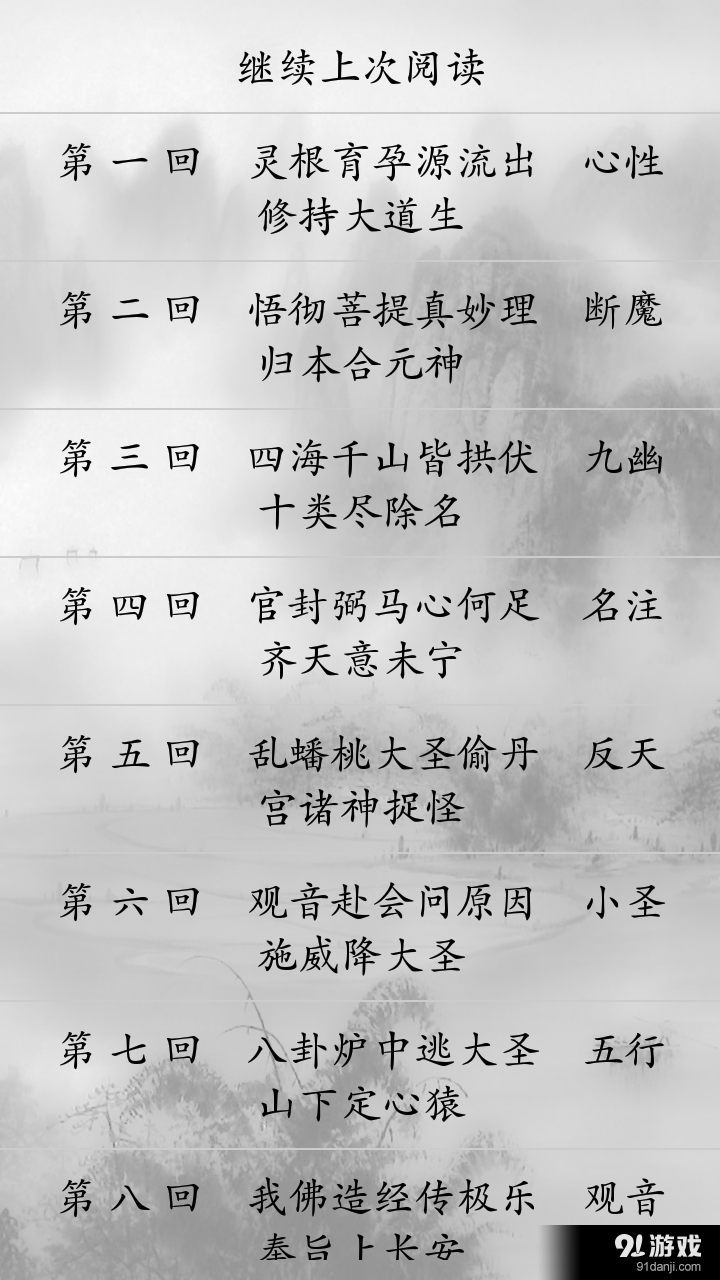 继续上次阅读
第一回 灵根育孕源流出 心性
修持大道生
第二回 悟彻菩提真妙理 断魔
归本合元神
第三回 四海千山皆拱伏 九幽
十类尽除名
第四回 官封弼马心何足 名注
齐天意未宁
第五回 乱蟠桃大圣偷丹 反天
宫诸神捉怪
第六回 观音赴会问原因 小圣
施威降大圣
第七回 八卦炉中逃大圣 五行
山下定心猿
第八回 我佛造经传极乐 观音
奉旨上长安
91游戏
91danji.com